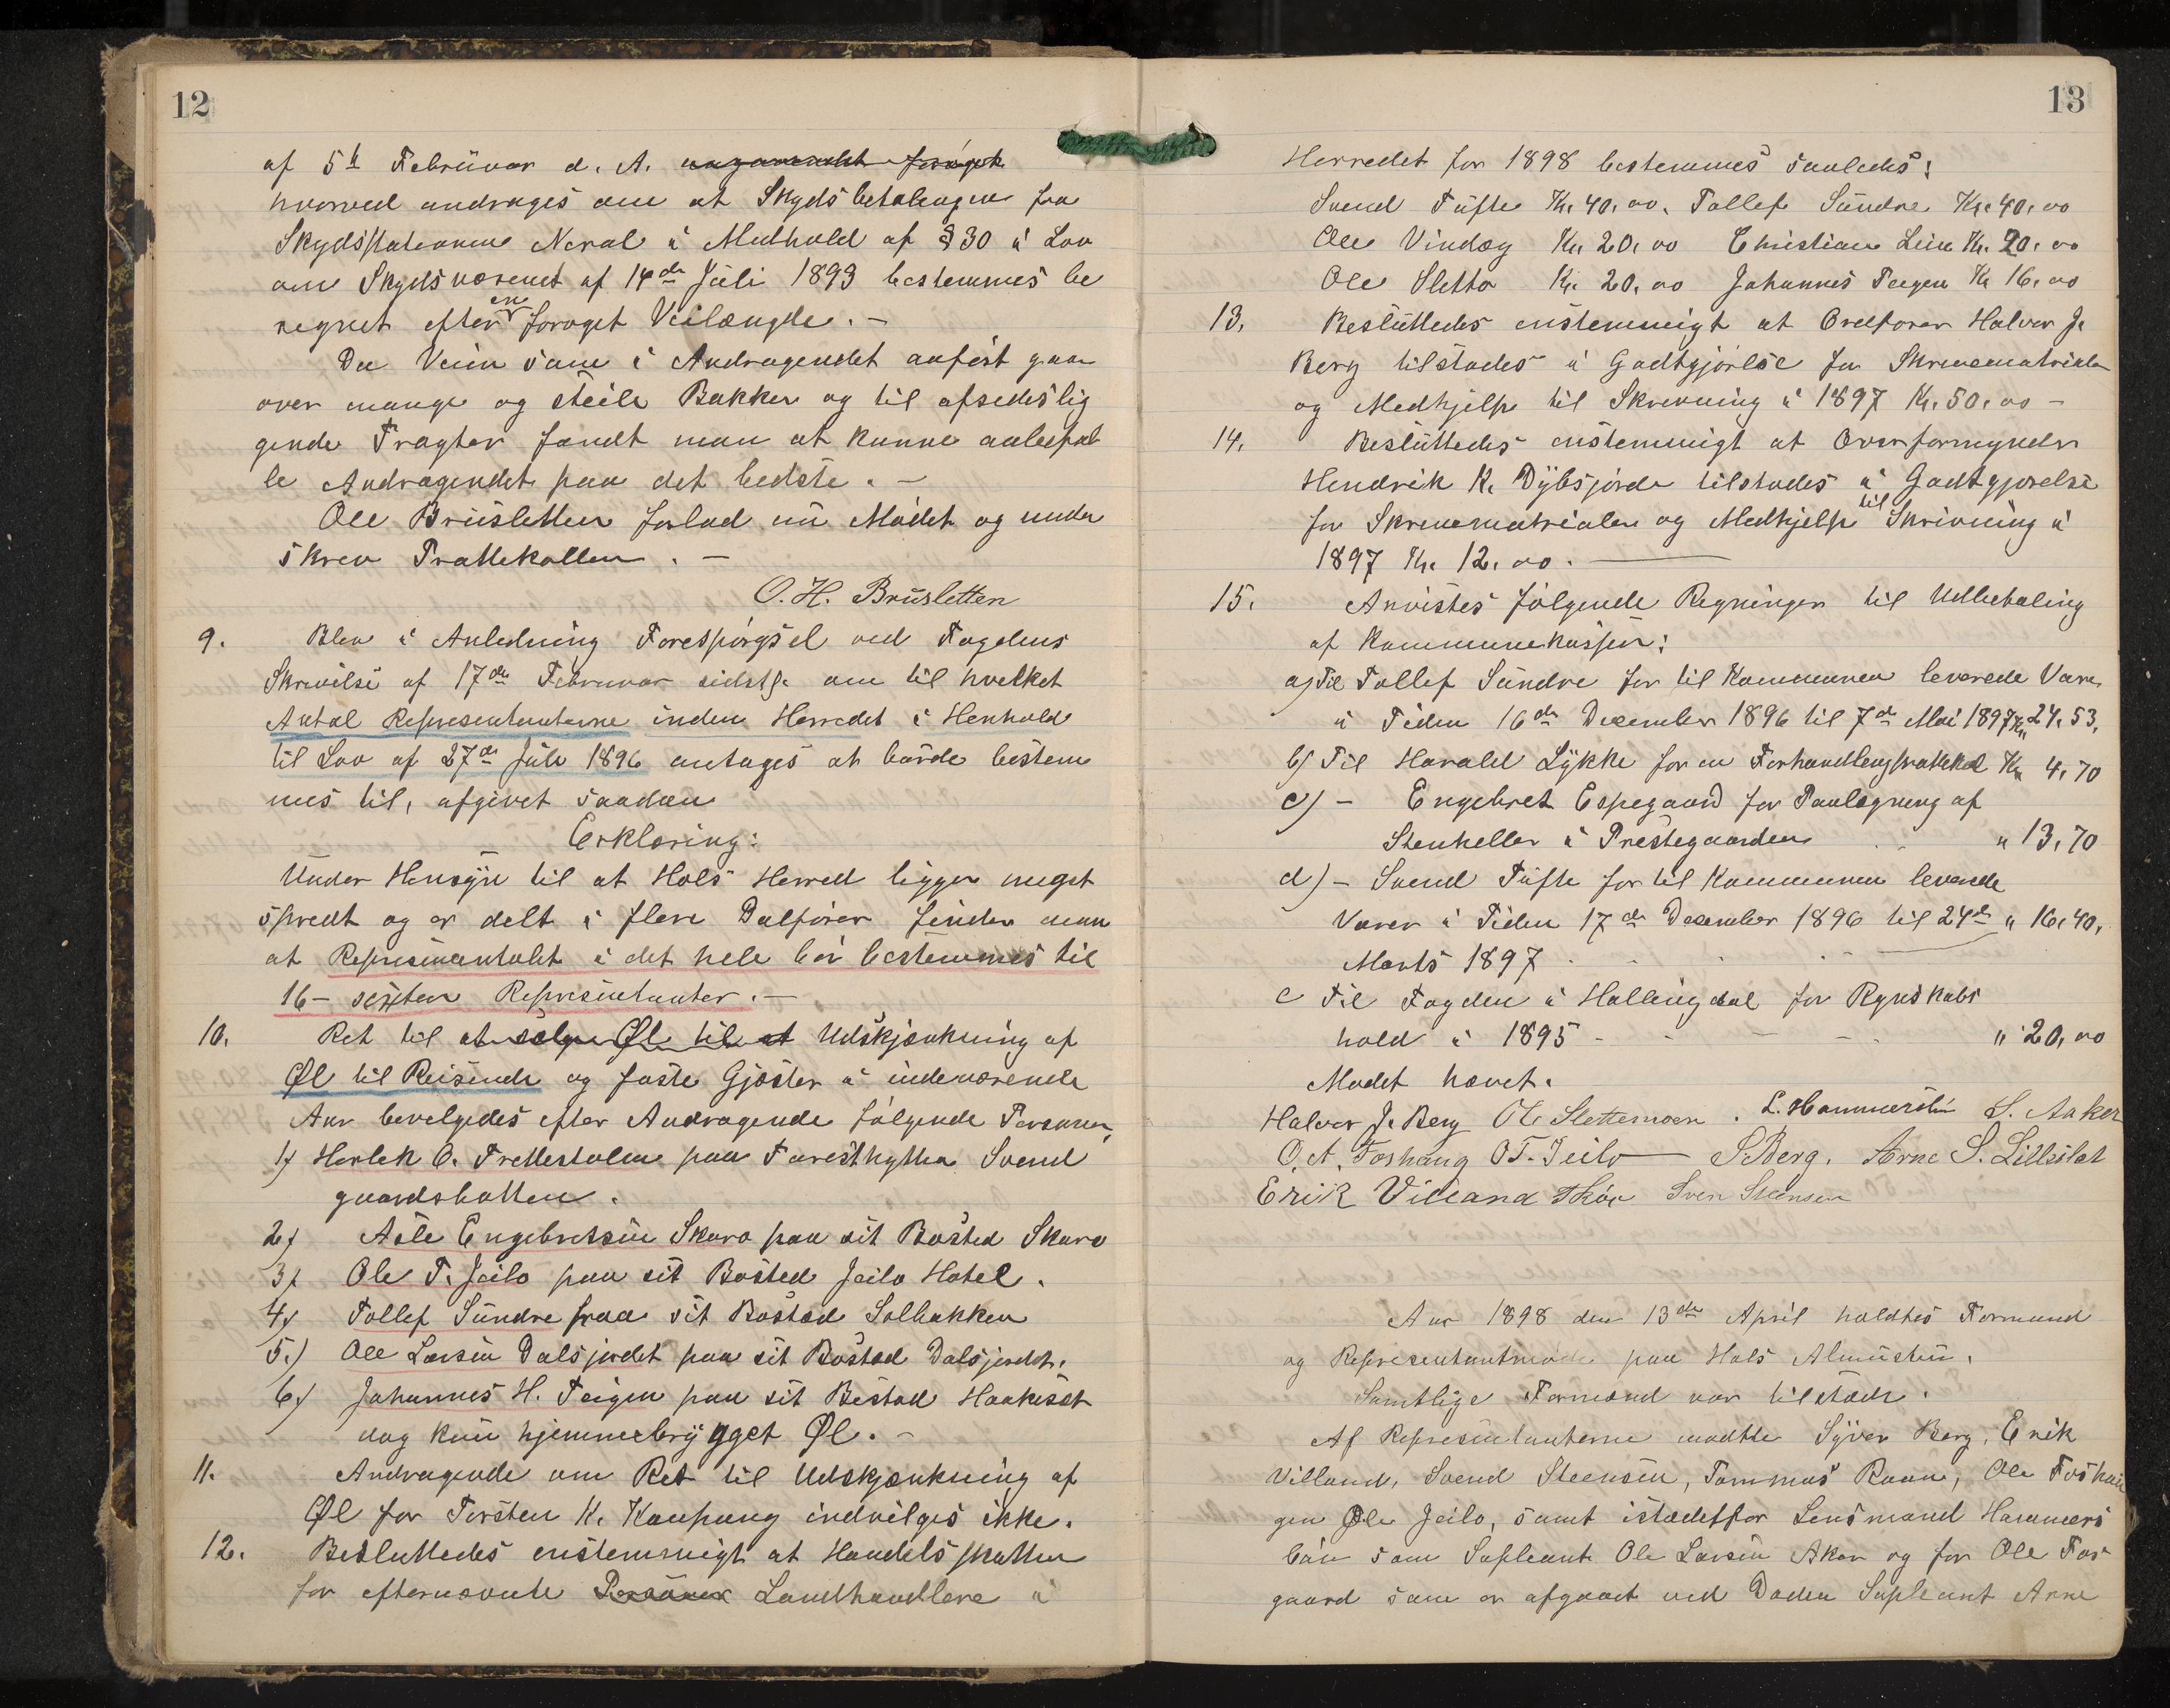 12
af 5te Februar d. A.
hvorved andrages om at Skydsbetalingen fra
Skydsstationen Neral i Medhold af § 30 i Lov
om Skydsvæsenet af 14de Juli 1893 bestemmes be
regnet efter en forøget Veilængde. –
Da Veien som i Andragendet anført gaar
over mange og steile Bakker og til afsideslig
gende Tragter fandt man at kunne anbefal
le Andragendet paa det bedste. –
Ole Brusletten forlod nu Mødet og under
skrev Prottekollen. –
O. H. Brusletten
9. Blev i Anledning Forespørgsel ved Fogdens
Skrivelse af 17de Februar sidstl. om til hvilket
Antal Representanterne inden Herredet i Henhold
til Lov af 27de Juli 1896 antages at burde bestem
mes til, afgivet saadan
Erklæring:
Under Hensyn til at Hols Herred ligger meget
spredt og er delt i flere Dalfører finder man
at Represeantalet i det hele bør bestemmes til
16 – sexten Representanter. –
10. Ret til at sælge Øl til at Udskjænkning af
Øl til Reisende og faste Gjæster i indeværende
Aar bevelgedes efter Andragende følgende Personer,
1) Herlek O. Trettestolen paa Turisthytten Svend
gaardsbotten.
2) Asle Engebretsen Skaro paa sit Bosted Skaro
3) Ole T. Jeilo paa sit Bosted Jeilo Hotel.
4) Tollef Sundre paa sit Bosted Solbakken
5.) Ole Larsen Dalsjordet paa sit Bosted Dalsjordet.
6) Johannes H. Teigen paa sit Bested Haakiset
dog kun hjemmebrygget Øl. –
11. Andragende om Ret til Udskjænkning af
Øl for Torsten K. Kaupang indvilges ikke.
12. Besluttedes enstemmigt at Handelsskatten
for efternævnte Personer Landhandlere i
13
Herredet for 1898 bestemmes saaledes:
Svend Tufte Kr. 40,00. Tollef Sundre Kr. 40,00
Ole Vindeg Kr. 20,00 Christian Lein Kr. 20,00
Ole Sletto Kr. 20,00 Johannes Teigen Kr 16,00
13. Besluttedes enstemmigt at Ordfører Halvor J.
Berg tilstodes i Godtgjørlse for Skrivematrialer
og Medhjelp til Skrivning i 1897 Kr. 50,00 –
14. Besluttedes enstemmigt at Overformynder
Hendrik K. Dybsjorde tilstodes i Godtgjørelse
for Skrivematrialer og Medhjelp til Skrivning i
1897 Kr. 12,00.
15. Anvistes følgende Regninger til Udbetaling
af Kommunekassen:
a) Til Tollef Sundre for til Kommunen leverede Varer
i Tiden 16de December 1896 til 7de Mai 1897 Kr. 24,53,
b) Til Harald Lykke for en Forhandlingsprattekol Kr 4,70
c) – Engebret Espegaard for Paalegning af
Stenheller i Prestegaarden " 13,70
d) – Svend Tufte for til Kommunen leverede
Varer i Tiden 17de December 1896 til 24de " 16,40,
Marts 1897
e Til Fogden i Hallingdal for Regnskabs
hold i 1895 – " 20,00
Mødet hævet.
Halvor J. Berg Ole Slettemoen. L. Hammersbøn S. Aaker
O. A. Foshaug O T. Jeilo S Berg. Arne S. Lilleslet
Erik Villand Skôr Sven Steensen
Aar 1898 den 13de April holdtes Formand
og Representantmøde paa Hols Almustue.
Samtlige Formænd var tilstede.
Af Representanterne mødtte Syver Berg, Erik
Villand, Svend Steensen, Tommas Raan, Ole Foshau
gen Ole Jeilo, samt istedetfor Lensmand Hammers
bøn som Supleant Ole Larsen Aker og for Ole Fos
gaard som er afgaaet ved Døden Supleant Arne